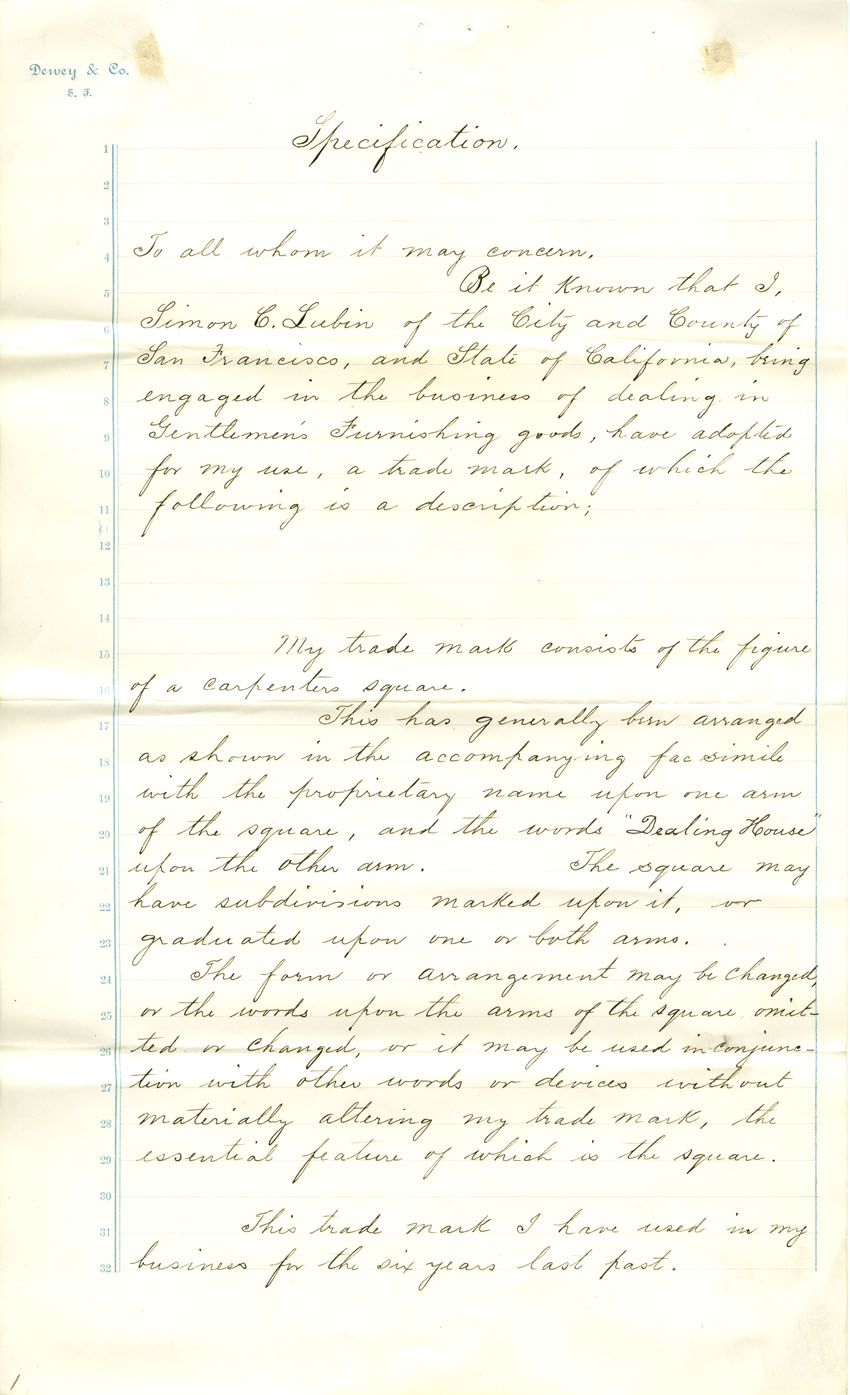 Dewey & Co.
S. F.
Specification.
1
2
3
4 To all whom it may concern,
5 Be it Known that I,
6 Simon C. Lubin of the City and County of
7 San Francisco, and State of California, being
8 engaged in the business of dealing in
9 Gentlemen's Furnishing goods, have adopted
10 for my use, a trade mark, of which the
11 following is a description;
12
13
14
15 My trade mark consists of the figure
16 of a carpenters square.
17 This has generally been arranged
18 as shown in the accompanying fac simile
19 with the proprietary name upon one arm
20 of the square, and the words "Dealing House"
21 upon the other arm. The square may
22 have subdivisions marked upon it, or
23 graduated upon one or both arms.
24 The form or arrangement may be changed,
25 or the words upon the arms of the square omit-
26 ted or changed, or it may be used in conjunc-
27 tion with other words or devices without
28 materially altering my trade mark, the
29 essential feature of which is the square.
30
31 This trade mark I have used in my
32 business for the six years last past.
1